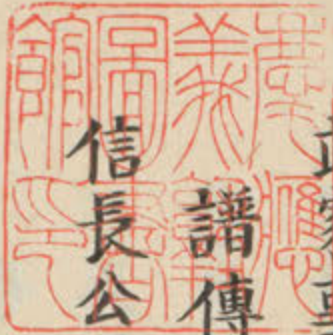 譜傳
信長公
慶應
義塾
圖書
館印